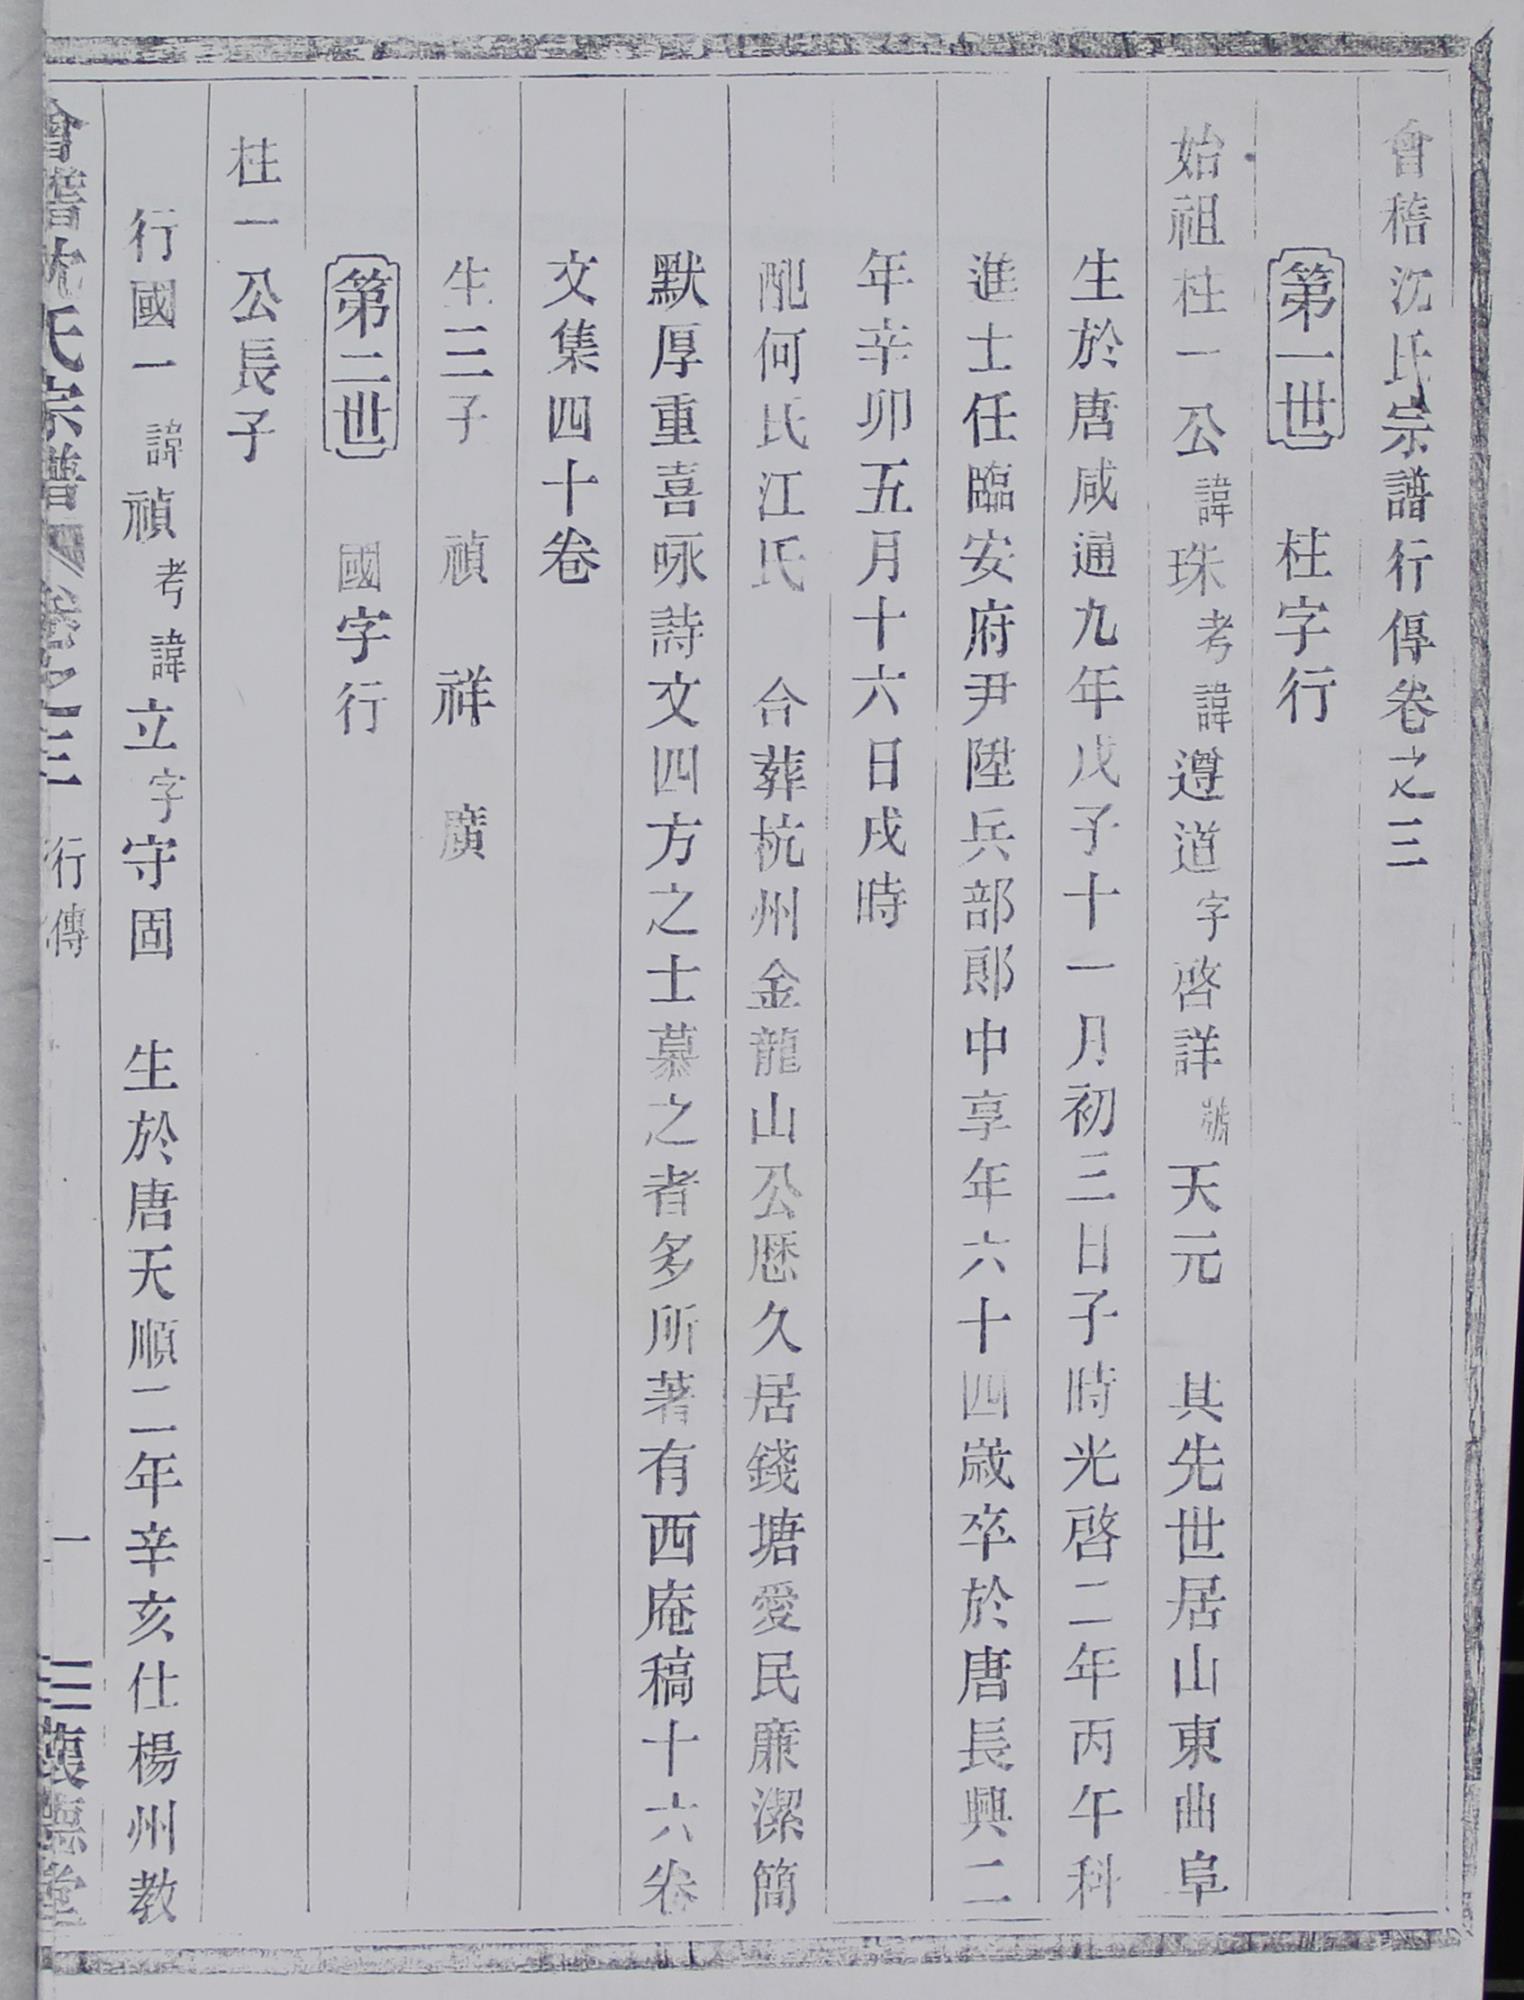 會稽沈氏宗譜行傳卷之三
第一世 柱字行
始祖柱一公諱珠考諱遵道字啓詳號天元 其先世居山東曲阜
生於唐咸通九年戊子十一月初三日子時光啓二年丙午科
進士任臨安府尹陞兵部郎中享年六十四歲卒於唐長興二
年辛卯五月十六日戌時
配何氏江氏 合葬杭州金龍山公歷久居錢塘愛民廉潔簡
默厚重喜咏詩文四方之士慕之者多所著有西庵稿十六卷
文集四十卷
生三子 禎 祥 廣
第二世 國字行
柱一公長子
行國一 諱禎考諱立字守固 生於唐天順二年辛亥仕楊州教
會稽沈氏宗譜 卷之三 行傳 一 三義德堂